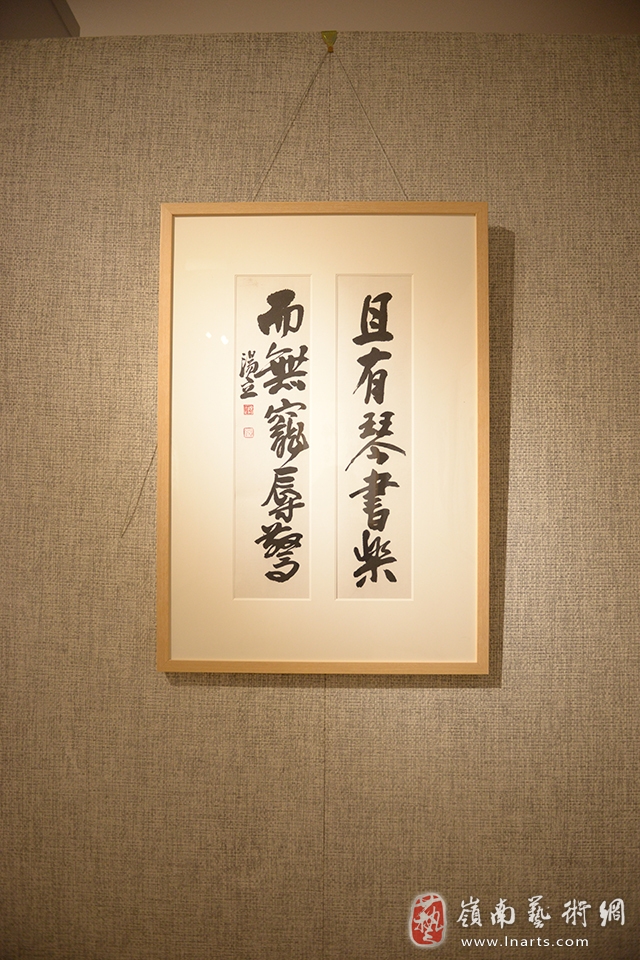 且有琴書樂
而無寵辱驚
湯立
藝
嶺南藝術網
www.lnarts.com